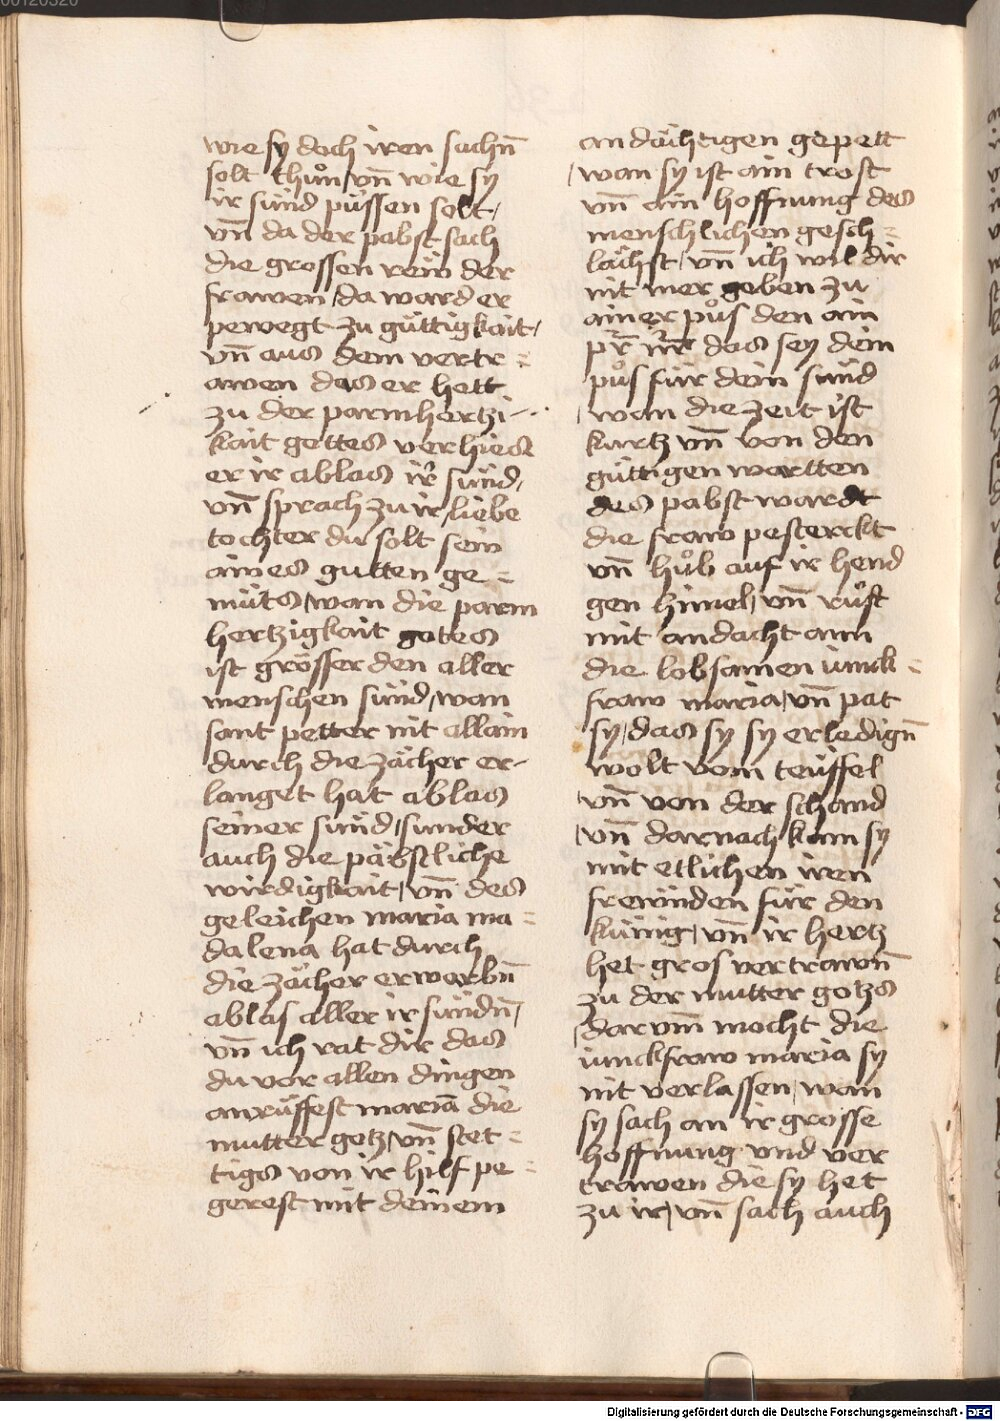 wie sy doch iren sachn̄
solt thůn / vn̄ wie sy
ir sünd püssen solt /
vn̄ da der pabst sach
die grossen rew der
frawen / da ward er
pewegt zu güttigkait /
vn̄ aus dem vertr=
awen das er hett
zu der parmhertzi-
kait gottes verhies
er ir ablas ir̄ sünd /
vn̄ sprach zu ir / liebe
tochter du solt sein
aines gutten ge=
müts / wan die parm
hertzigkait gotes
ist grösser den aller
menschen sünd / wan
sant petter nit allain
durch die zächer er-
langet hat ablas
seiner sünd / sunder
auch die päbstliche
wirdigkait / vn̄ des
geleichen maria ma=
dalena hat durch
die zächer erworbn̄
ablas aller ir sündn̄ /
vn̄ ich rat dir das
du vor allen dingen
anrüffest mariā die
mutter gotz / vn̄ stet=
tigs von ir hilf pe=
gerest mit deinem
andächtigen gepett
/ wan sy ist ain trost
vn̄ ain hoffnung des
menschlichen gesch=
lächst / vn̄ ich wil dir
nit mer geben zu
ainer půs den ain
pr̄ nr̄ das sey dein
půs für dein sünd
/ wan die zeit ist
kurtz vn̄ von den
güttigen wortten
des pabst wardt
die fraw pesterckt
vn̄ hůb auf ir hend
gen himel / vn̄ rüft
mit andacht ann
die lobsamen iunck=
fraw maria / vn̄ pat
sy / das sy sy erledign̄
wolt vom teüffel
vn̄ von der schand
/ vn̄ darnach kam sy
mit etlichen iren
frewnden für den
künig / vn̄ ir hertz
het gros vertrawn̄
zu der mutter gotzs
/ darvm̄ mocht die
iunckfraw maria sy
nit verlassen / wan
sy sach an ir grosse
hoffnung vnd ver
trawen die sy het
zu ir / vn̄ sach auch
Digitalisierung gefördert durch die Deutsche Forschungsgemeinschaft - DFG